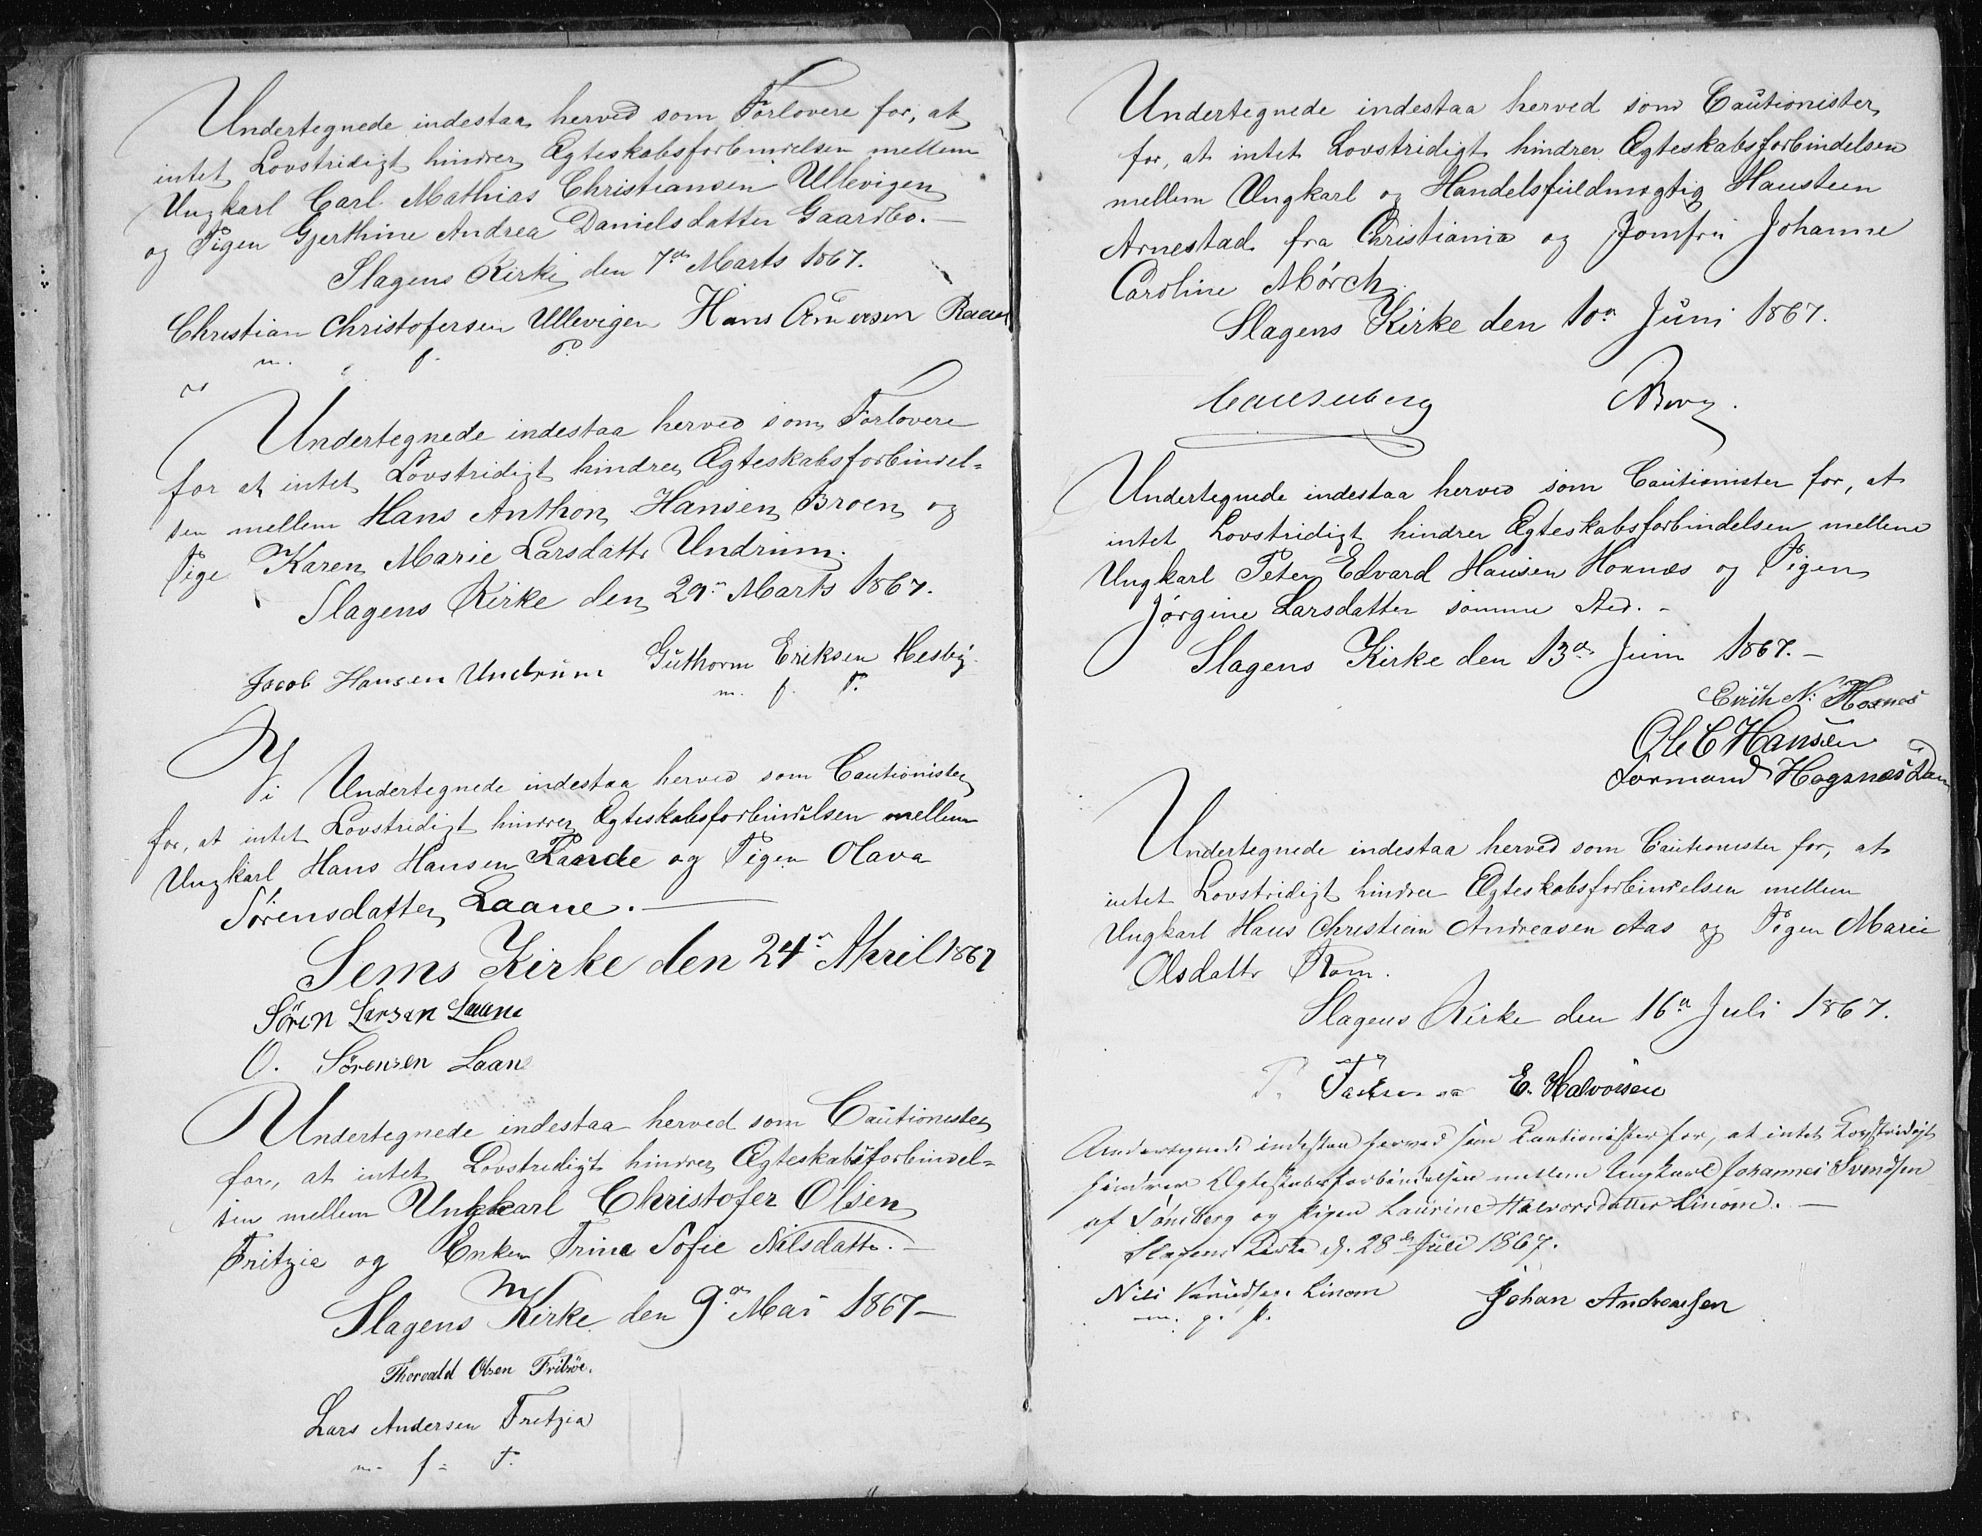 Undertegnede indestaa herved som Forlovere for, at
intet Lovstridigt hindrer Ægteskabsforbindelsen mellem
Ungkarl Carl Mathias Christiansen Ullevigen
og Pigen Gjerthine Andrea Danielsdatter Gaardbo. —
Slagens Kirke den 7de Marts 1867.
Christian Christofersen Ullevigen Hans Andersen
m. f. P.
Undertegnede indestaa herved som Forlovere
for at intet Lovstridigt hindrer Ægteskabsforbindel=
sen mellem Hans Anthon Hansen Broen og
Pige Karen Marie Larsdattr Undrum.
Slagens Kirke den 29n Marts 1867.
Jacob Hansen Undrum Guthorm Eriksen Hesby.
m. f. P.
Vi Undertegnede indestaa herved som Cautionister
for, at intet Lovstridigt hindrer Ægteskabsforbindelsen mellem
Ungkarl Hans Hansen Rande og Pigen Olava
Sørensdatter Laane. —
Sems Kirke den 24n April 1867
Sören Larsen Laane
O. Sørensen Laane
Undertegnede indestaa herved som Cautionister
for, at intet Lovstridigt hindrer Ægteskabsforbindel=
sen mellem Ungkarl Christofer Olsen
Fritzia og Enken Trine Sofie Nilsdattr. —
Slagens Kirke den 9de Mai 1867 —
Thorvald Olsen
Lars Andersen Fritzia
m. f. P.
Undertegnede indestaa herved som Cautionister
for, at intet Lovstridigt hindrer Ægteskabsforbindelsen
mellem Ungkarl og Handelsfuldmægtig Hansteen
Arnestad fra Christiania og Jomfru Johanne
Caroline Mørch.
Slagens Kirke den 10n Juni 1867.
Berg.
Undertegnede indestaa herved som Cautionister for, at
intet Lovstridigt hindrer Ægteskabsforbindelsen mellem
Ungkarl Peter Edvard Hansen Hoxnæs og Pigen
Jørgine Larsdatter samme Sted. -
Slagens Kirke den 13de Juni 1867. —
Erich N. Hoxnes
Ole C Hansen
Formand
Undertegnede indestaa herved som Cautionister for, at
intet Lovstridigt hindrer Ægteskabsforbindelsen mellem
Ungkarl Hans Christian Andreasen Aas og Pigen Marie
Olsdattr Rom.
Slagens Kirke den 16n Juli 1867.
E. Halvorsen
Undertegnede indestaa herved som Cautionister for, at intet Lovstridigt
hindrer Ægteskabsforbindelsen mellem Ungkarl Johannes Svendsen
af Tönsberg og Pigen Laurine Halvorsdatter Linom. —
Slagens Kirke d. 28de Juli 1867.
Nils Knudsen Linom Johan Andreassen
m. p. P.